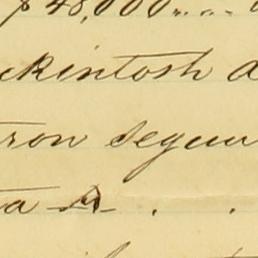 $48,000
ckintosh d
tron segun
ta A